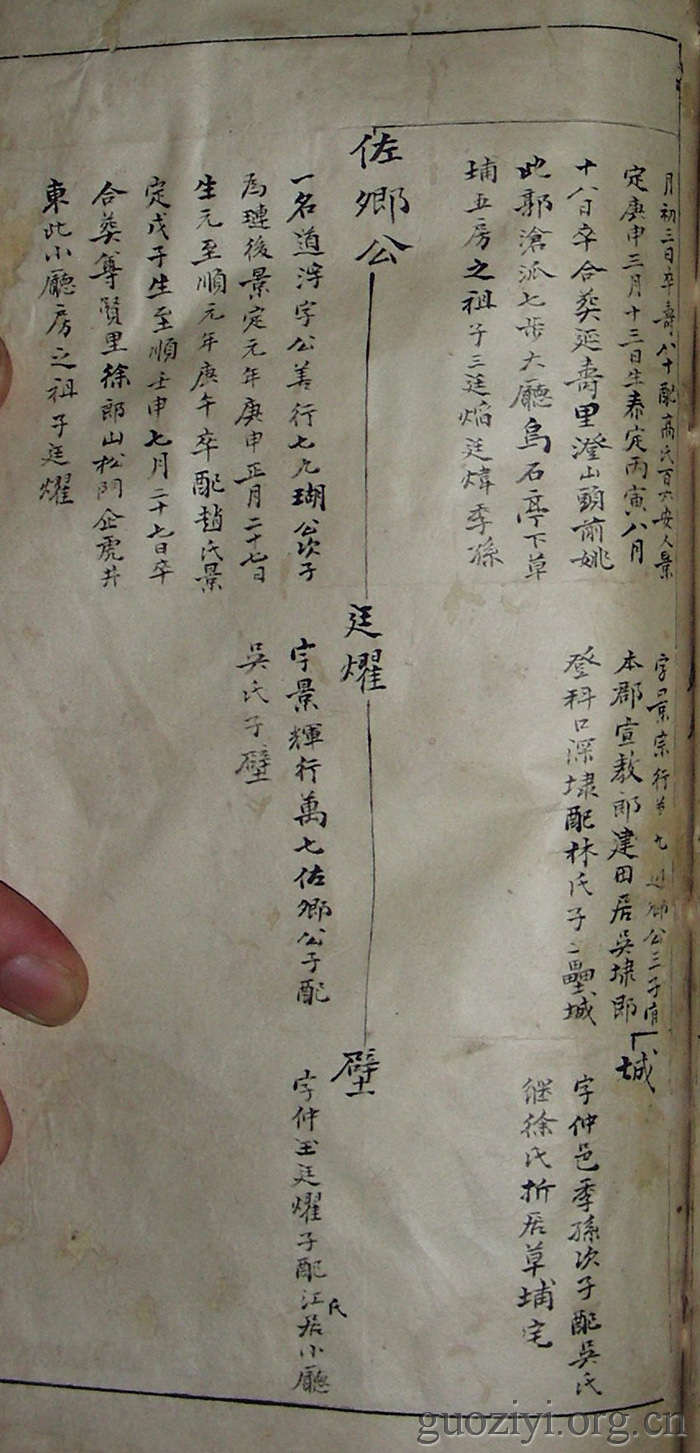 月初三日卒壽八十配高氏百六安人景
定庚申三月十三日生泰定丙寅八月
十八日卒合葬延壽里澄山頭前姚
此郭滄派七步大廳烏石亭下草
埔五房之祖子三廷焰廷煒季孫
佐鄉公
一名道淳字公善行七九瑚公次子
為璉後景定元年庚申正月二十七日
生元至順元年庚午卒配趙氏景
定戊子生至順壬申七月二十七日卒
合葬尊賢里徐郎山松門企虎井
東此小廳房之祖子廷燿
字景宗行 九 鄉公三子有
本郡宣教郎建田居吳埭即
登科口深埭配林氏子二壘城
廷燿
字景輝行萬七佐鄉公子配
吳氏子壁
城
字仲邑季孫次子配吳氏
继徐氏折居草埔宅
壁
字仲玉廷燿子配江氏居小廳
guoziyi.org.cn